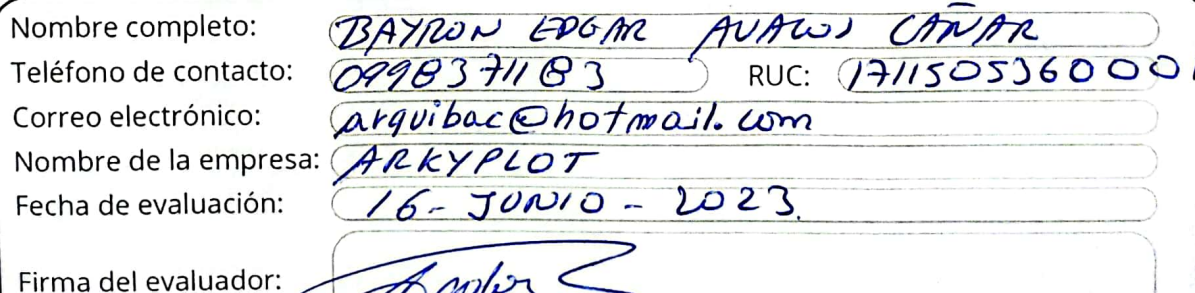 Nombre completo: BAYRON EDGAR AVALOS CAÑAR
Teléfono de contacto: 0998371183 RUC: 17115055360001
Correo electrónico: arquibac@hotmail.com
Nombre de la empresa: ARKYPLOT
Fecha de evaluación: 16-JUNIO-2023.
Firma del evaluador: